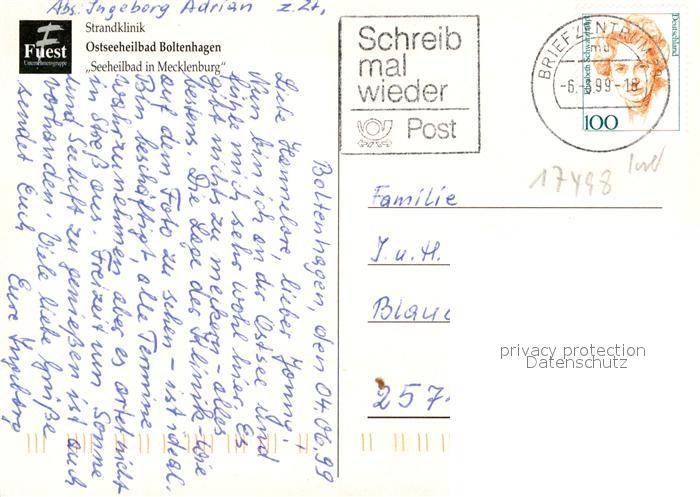 Abs. Ingeborg Adrian z.Zt.
Fuest
Unternehmensgruppe
Strandklinik
Ostseeheilbad Boltenhagen
„Seeheilbad in Mecklenburg"
Schreib
mal
wieder
Post
BRIEFZENTRUM
-6.-6.99-18
Deutschland
100
17498
Boltenhagen, den 04.06.99
Liebe Hannelore, lieber Jonny!
Nun bin ich an der Ostsee und
fühle mich sehr wohl hier. Es
gibt nichts zu meckern - alles
bestens. Die Lage der Klinik - wie
auf dem Foto zu sehen - ist ideal.
Bin beschäftigt, alle Termine
wahrzunehmen aber es artet nicht
in Streß aus. Freizeit um Sonne
und Seeluft zu genießen ist auch
vorhanden. Viele liebe Grüße
sendet Euch
Eure Ingeborg
Familie
J. u. H.
Blau
257
privacy protection
Datenschutz